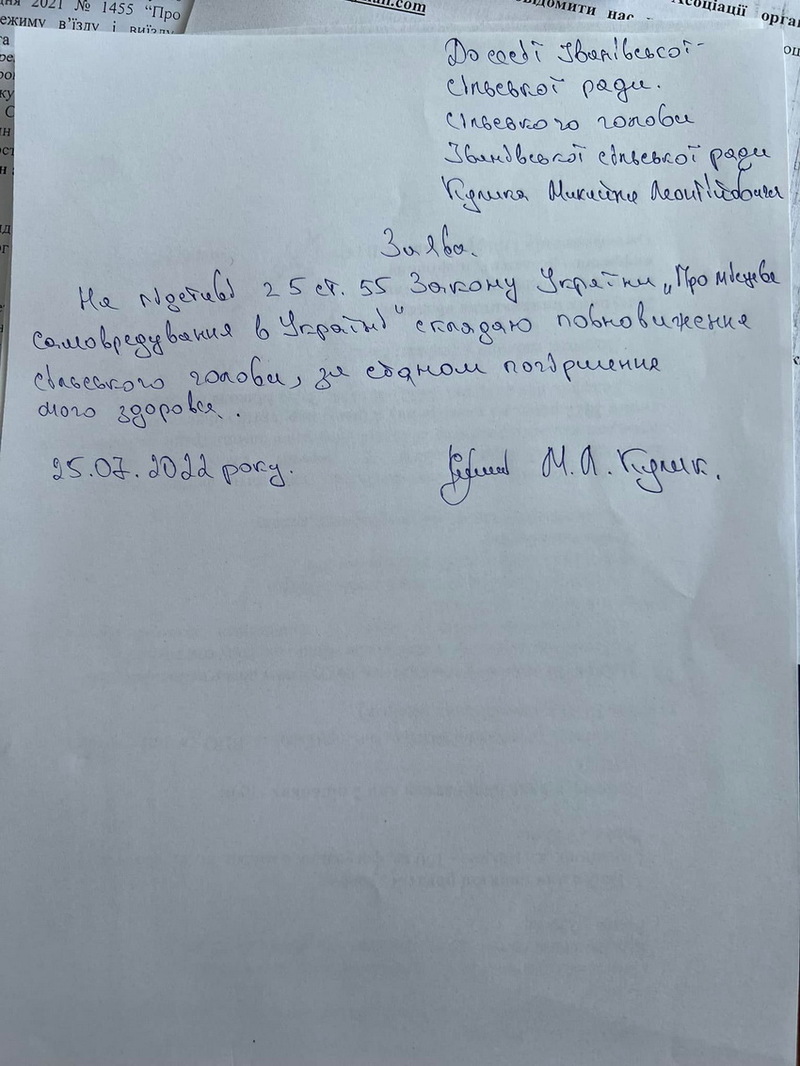 дня 2021 № 1455 “Про
ежиму в’їзду і виїзду
.com
відомити нас
Асоціації орган
До сесії Іванівської
сільської ради.
сільського голови
Іванівської сільської ради
Кулика Миколи Леонтійовича
Заява.
На підставі 25 ст. 55 Закону України „Про місцеве
самовредування в Україні” складаю повновиження
сільського голови, за станом погіршення
мого здоровся.
25.07.2022 року.
М. Л. Кулик.